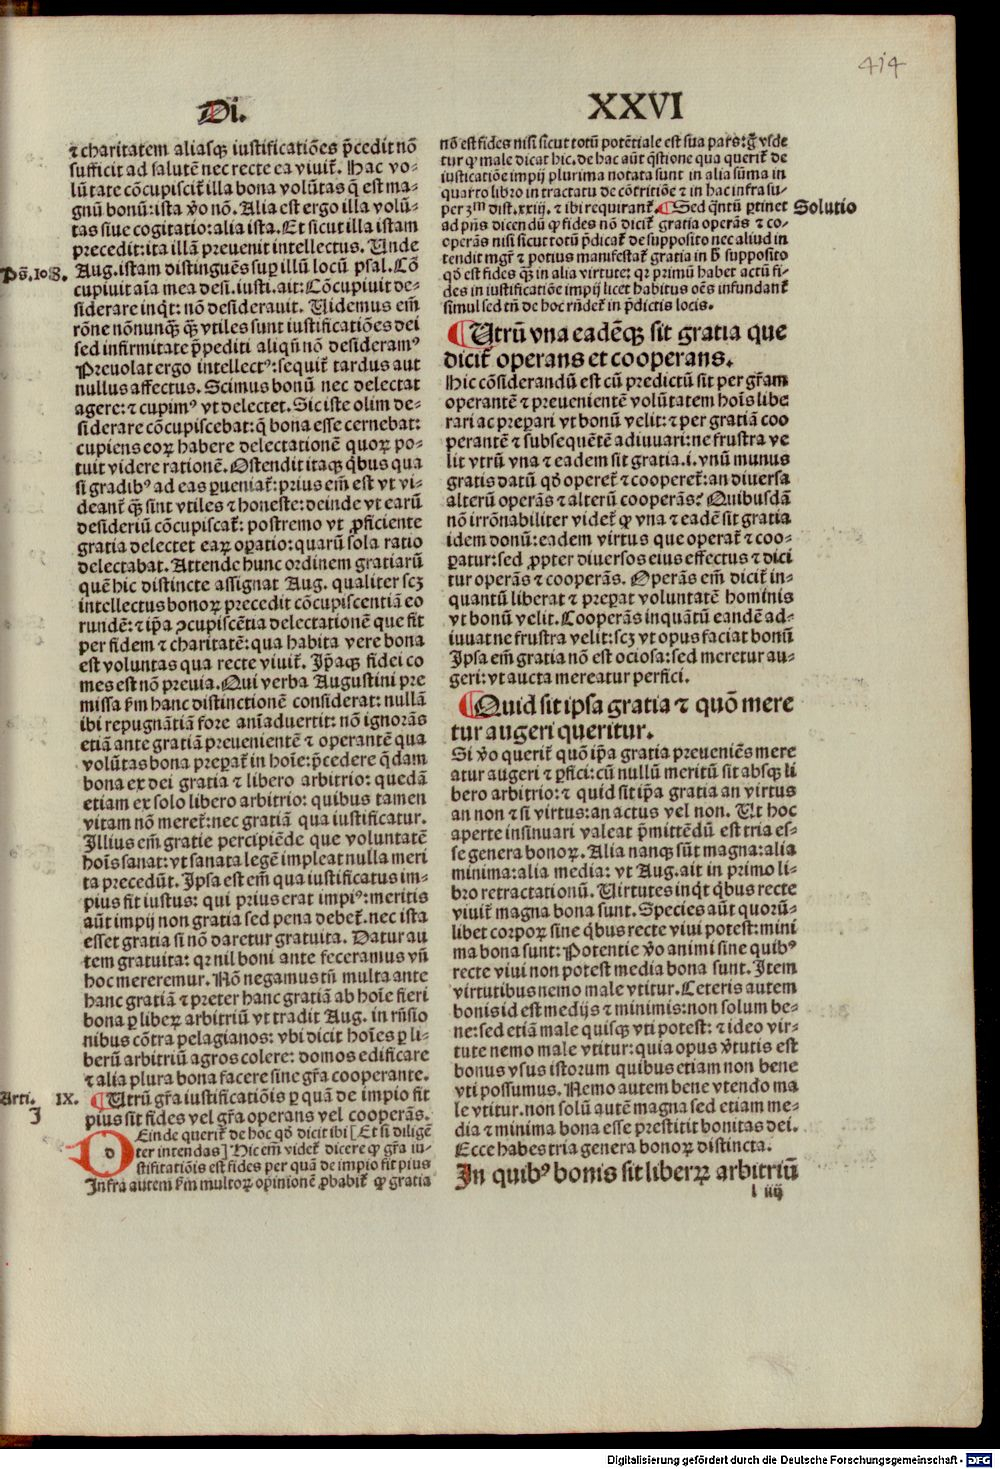 414
Di.
XXVI
⁊ charitatem aliasqꝫ iustificatiões p̄cedit nō
sufficit ad salutē nec recte ea viuit᷑. Hac vo-
lūtate cōcupiscit᷑ illa bona volūtas q̄ est ma-
gnū bonū: ista v̄o nō. Alia est ergo illa volū-
tas siue cogitatio: alia ista. Et sicut illa istam
precedit: ita illā preuenit intellectus. Unde
Ps̄. 108.
Aug. istam distinguēs suꝑ illū locū psal. Cō
cupiuit aīa mea desi. iusti. ait: Cōcupiuit de-
siderare inq̇t: nō desiderauit. Videmus em̄
rōne nōnunqꝫ qꝫ vtiles sunt iustificatiões dei
sed infirmitate p̄pediti aliqn̄ nō desideramꝰ
Preuolat ergo intellectꝰ: sequit᷑ tardus aut
nullus affectus. Scimus bonū nec delectat
agere: ⁊ cupimꝰ vt delectet. Sic iste olim de-
siderare cōcupiscebat: q̄ bona esse cernebat:
cupiens eoꝝ habere delectationē quoꝝ po-
tuit videre rationē. Ostendit itaqꝫ q̇bus qua
si gradibꝰ ad eas ꝑueniat᷑: prius em̄ est vt vi-
deant᷑ qꝫ sint vtiles ⁊ honeste: deinde vt earū
desideriū cōcupiscat᷑: postremo vt ꝓficiente
gratia delectet eaꝝ oꝑatio: quarū sola ratio
delectabat. Attende hunc ordinem gratiarū
quē hic distincte assignat Aug. qualiter scꝫ
intellectus bonoꝝ precedit cōcupiscentiā eo
rundē: ⁊ ip̄a ꝯcupiscētia delectationē que fit
per fidem ⁊ charitatē: qua habita vere bona
est voluntas qua recte viuit᷑. Ip̄aqꝫ fidei co
mes est nō preuia. Qui verba Augustini pre
missa s̄m hanc distinctionē considerat: nullā
ibi repugnātiā fore aīaduertit: nō ignorās
etiā ante gratiā preuenientē ⁊ operantē qua
volūtas bona preparat᷑ in hoīe: p̄cedere q̄dam
bona ex dei gratia ⁊ libero arbitrio: quedā
etiam ex solo libero arbitrio: quibus tamen
vitam nō meret᷑: nec gratiā qua iustificatur.
Illius em̄ gratie percipiēde que voluntatē
hoīs sanat: vt sanata legē impleat nulla meri
ta precedūt. Ipsa est em̄ qua iustificatus im-
pius fit iustus: qui prius erat impiꝰ: meritis
aūt impij non gratia sed pena debet᷑. nec ista
esset gratia si nō daretur gratuita. Datur au
tem gratuita: qꝛ nil boni ante feceramus vn̄
hoc mereremur. Nō negamus tn̄ multa ante
hanc gratiā ⁊ preter hanc gratiā ab hoīe fieri
bona ꝑ liberꝝ arbitriū vt tradit Aug. in rn̄sio
nibus cōtra pelagianos: vbi dicit hoīes ꝑ li-
berū arbitriū agros colere: domos edificare
⁊ alia plura bona facere sine gr̄a cooperante.
Arti. IX.
I
Utrū gr̄a iustificatiōis ꝑ quā de impio fit
pius sit fides vel gr̄a operans vel cooperās.
DEinde querit᷑ de hoc qd̄ dicit ibi [Et si diligē
ter intendas] Hic em̄ videt᷑ dicere ꝙ gr̄a iu-
stificatiōis est fides per quā de impio fit pius
Infra autem s̄m multoꝝ opinionē ꝓbabit᷑ ꝙ gratia
nō est fides nisi sicut totū potētiale est sua pars: g̊ vide
tur ꝙ male dicat hic. de hac aūt q̄stione qua querit᷑ de
iusticatiōe impij plurima notata sunt in alia sūma in
quarto libro in tractatu de cōtritiōe ⁊ in hac infra su-
per 3m dist. xxiij. ⁊ ibi requirant᷑. Sed q̄ntū ꝑtinet
Solutio
ad p̄ns dicendū ꝙ fides nō dicit᷑ gratia operās ⁊ co-
operās nisi sicut totū p̄dicat᷑ de supposito nec aliud in
tendit mgr̄ ⁊ potius manifestat᷑ gratia in h̄ supposito
qd̄ est fides qꝫ in alia virtute: qꝛ primū habet actū fi-
des in iustificatiōe impij licet habitus oēs infundant᷑
simul sed tn̄ de hoc rn̄det᷑ in p̄dictis locis.
Utrū vna eadēqꝫ sit gratia que
dicit᷑ operans et cooperans.
Hic cōsiderandū est cū predictū sit per gr̄am
operantē ⁊ preuenientē volūtatem hoīs libe
rari ac preꝑari vt bonū velit: ⁊ per gratiā coo
perantē ⁊ subsequētē adiuuari: ne frustra ve
lit vtrū vna ⁊ eadem sit gratia. i. vnū munus
gratis datū qd̄ operet᷑ ⁊ cooperet᷑: an diuersa
alterū operās ⁊ alterū cooperās? Quibusdā
nō irrōnabiliter videt᷑ ꝙ vna ⁊ eadē sit gratia
idem donū: eadem virtus que operat᷑ ⁊ coo-
ꝑatur: sed ꝓpter diuersos eius effectus ⁊ dici
tur operās ⁊ cooperās. Operās em̄ dicit᷑ in-
quantū liberat ⁊ preꝑat voluntatē hominis
vt bonū velit. Cooperās inquātū eandē ad-
iuuat ne frustra velit: scꝫ vt opus faciat bonū
Ipsa em̄ gratia nō est ociosa: sed meretur au-
geri: vt aucta mereatur perfici.
Quid sit ipsa gratia ⁊ quō mere
tur augeri queritur.
Si v̄o querit᷑ quō ip̄a gratia preueniēs mere
atur augeri ⁊ ꝑfici: cū nullū meritū sit absqꝫ li
bero arbitrio: ⁊ quid sit ip̄a gratia an virtus
an non ⁊ si virtus: an actus vel non. Ut hoc
aperte insinuari valeat p̄mittēdū est tria es-
se genera bonoꝝ. Alia nanqꝫ sūt magna: alia
minima: alia media: vt Aug. ait in primo li-
bro retractationū. Virtutes inq̇t q̇bus recte
viuit᷑ magna bona sunt. Species aūt quorū-
libet corpoꝝ sine q̇bus recte viui potest: mini
ma bona sunt: Potentie v̄o animi sine quibꝰ
recte viui non potest media bona sunt. Item
virtutibus nemo male vtitur. Ceteris autem
bonis id est medijs ⁊ minimis: non solum be-
ne: sed etiā male quisqꝫ vti potest: ⁊ ideo vir-
tute nemo male vtitur: quia opus v̄tutis est
bonus vsus istorum quibus etiam non bene
vti possumus. Nemo autem bene vtendo ma
le vtitur. non solū autē magna sed etiam me-
dia ⁊ minima bona esse prestitit bonitas dei.
Ecce habes tria genera bonoꝝ distincta.
In quibꝰ bonis sit liberꝝ arbitriū
l iiij
Digitalisierung gefördert durch die Deutsche Forschungsgemeinschaft - DFG